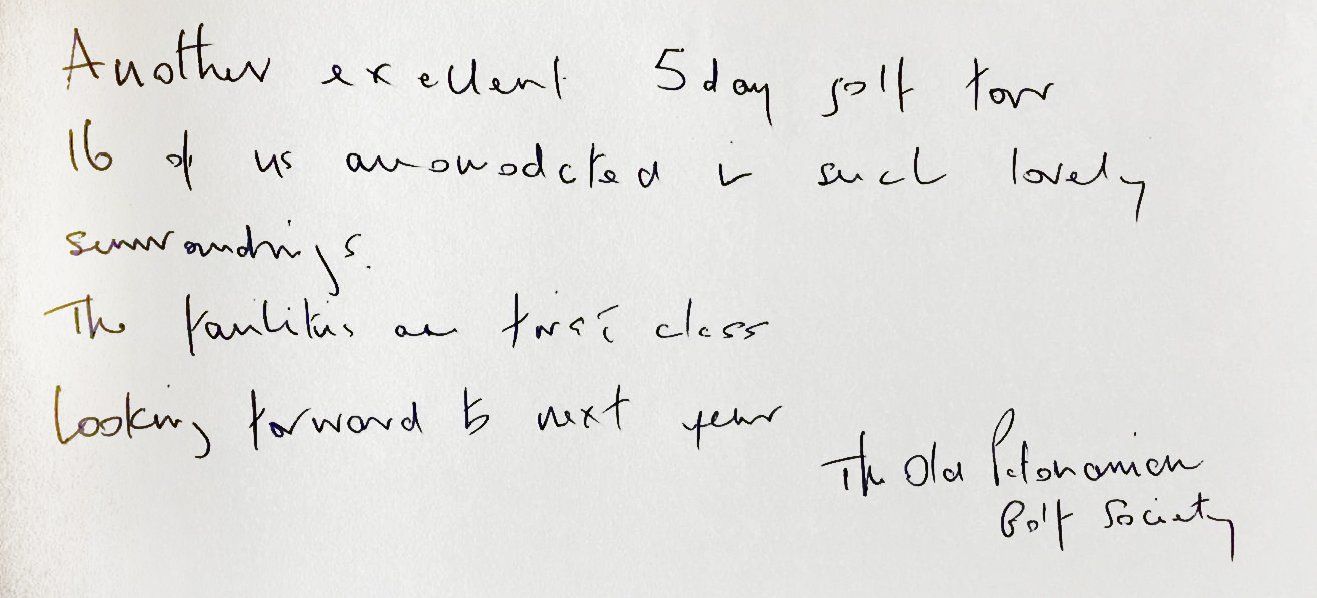 Another excellent 5 day golf tour
16 of us accomodated in such lovely
surroundings.
The facilities are first class
Looking forward to next year
The Old
Golf Society